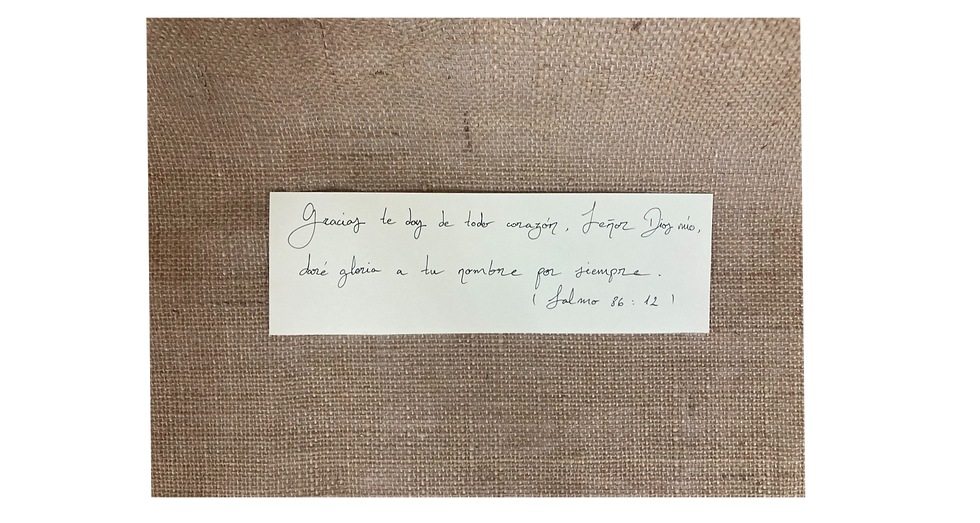 Gracias te doy de todo corazón, Señor Dios mío,
daré gloria a tu nombre por siempre.
( Salmo 86 : 12 )